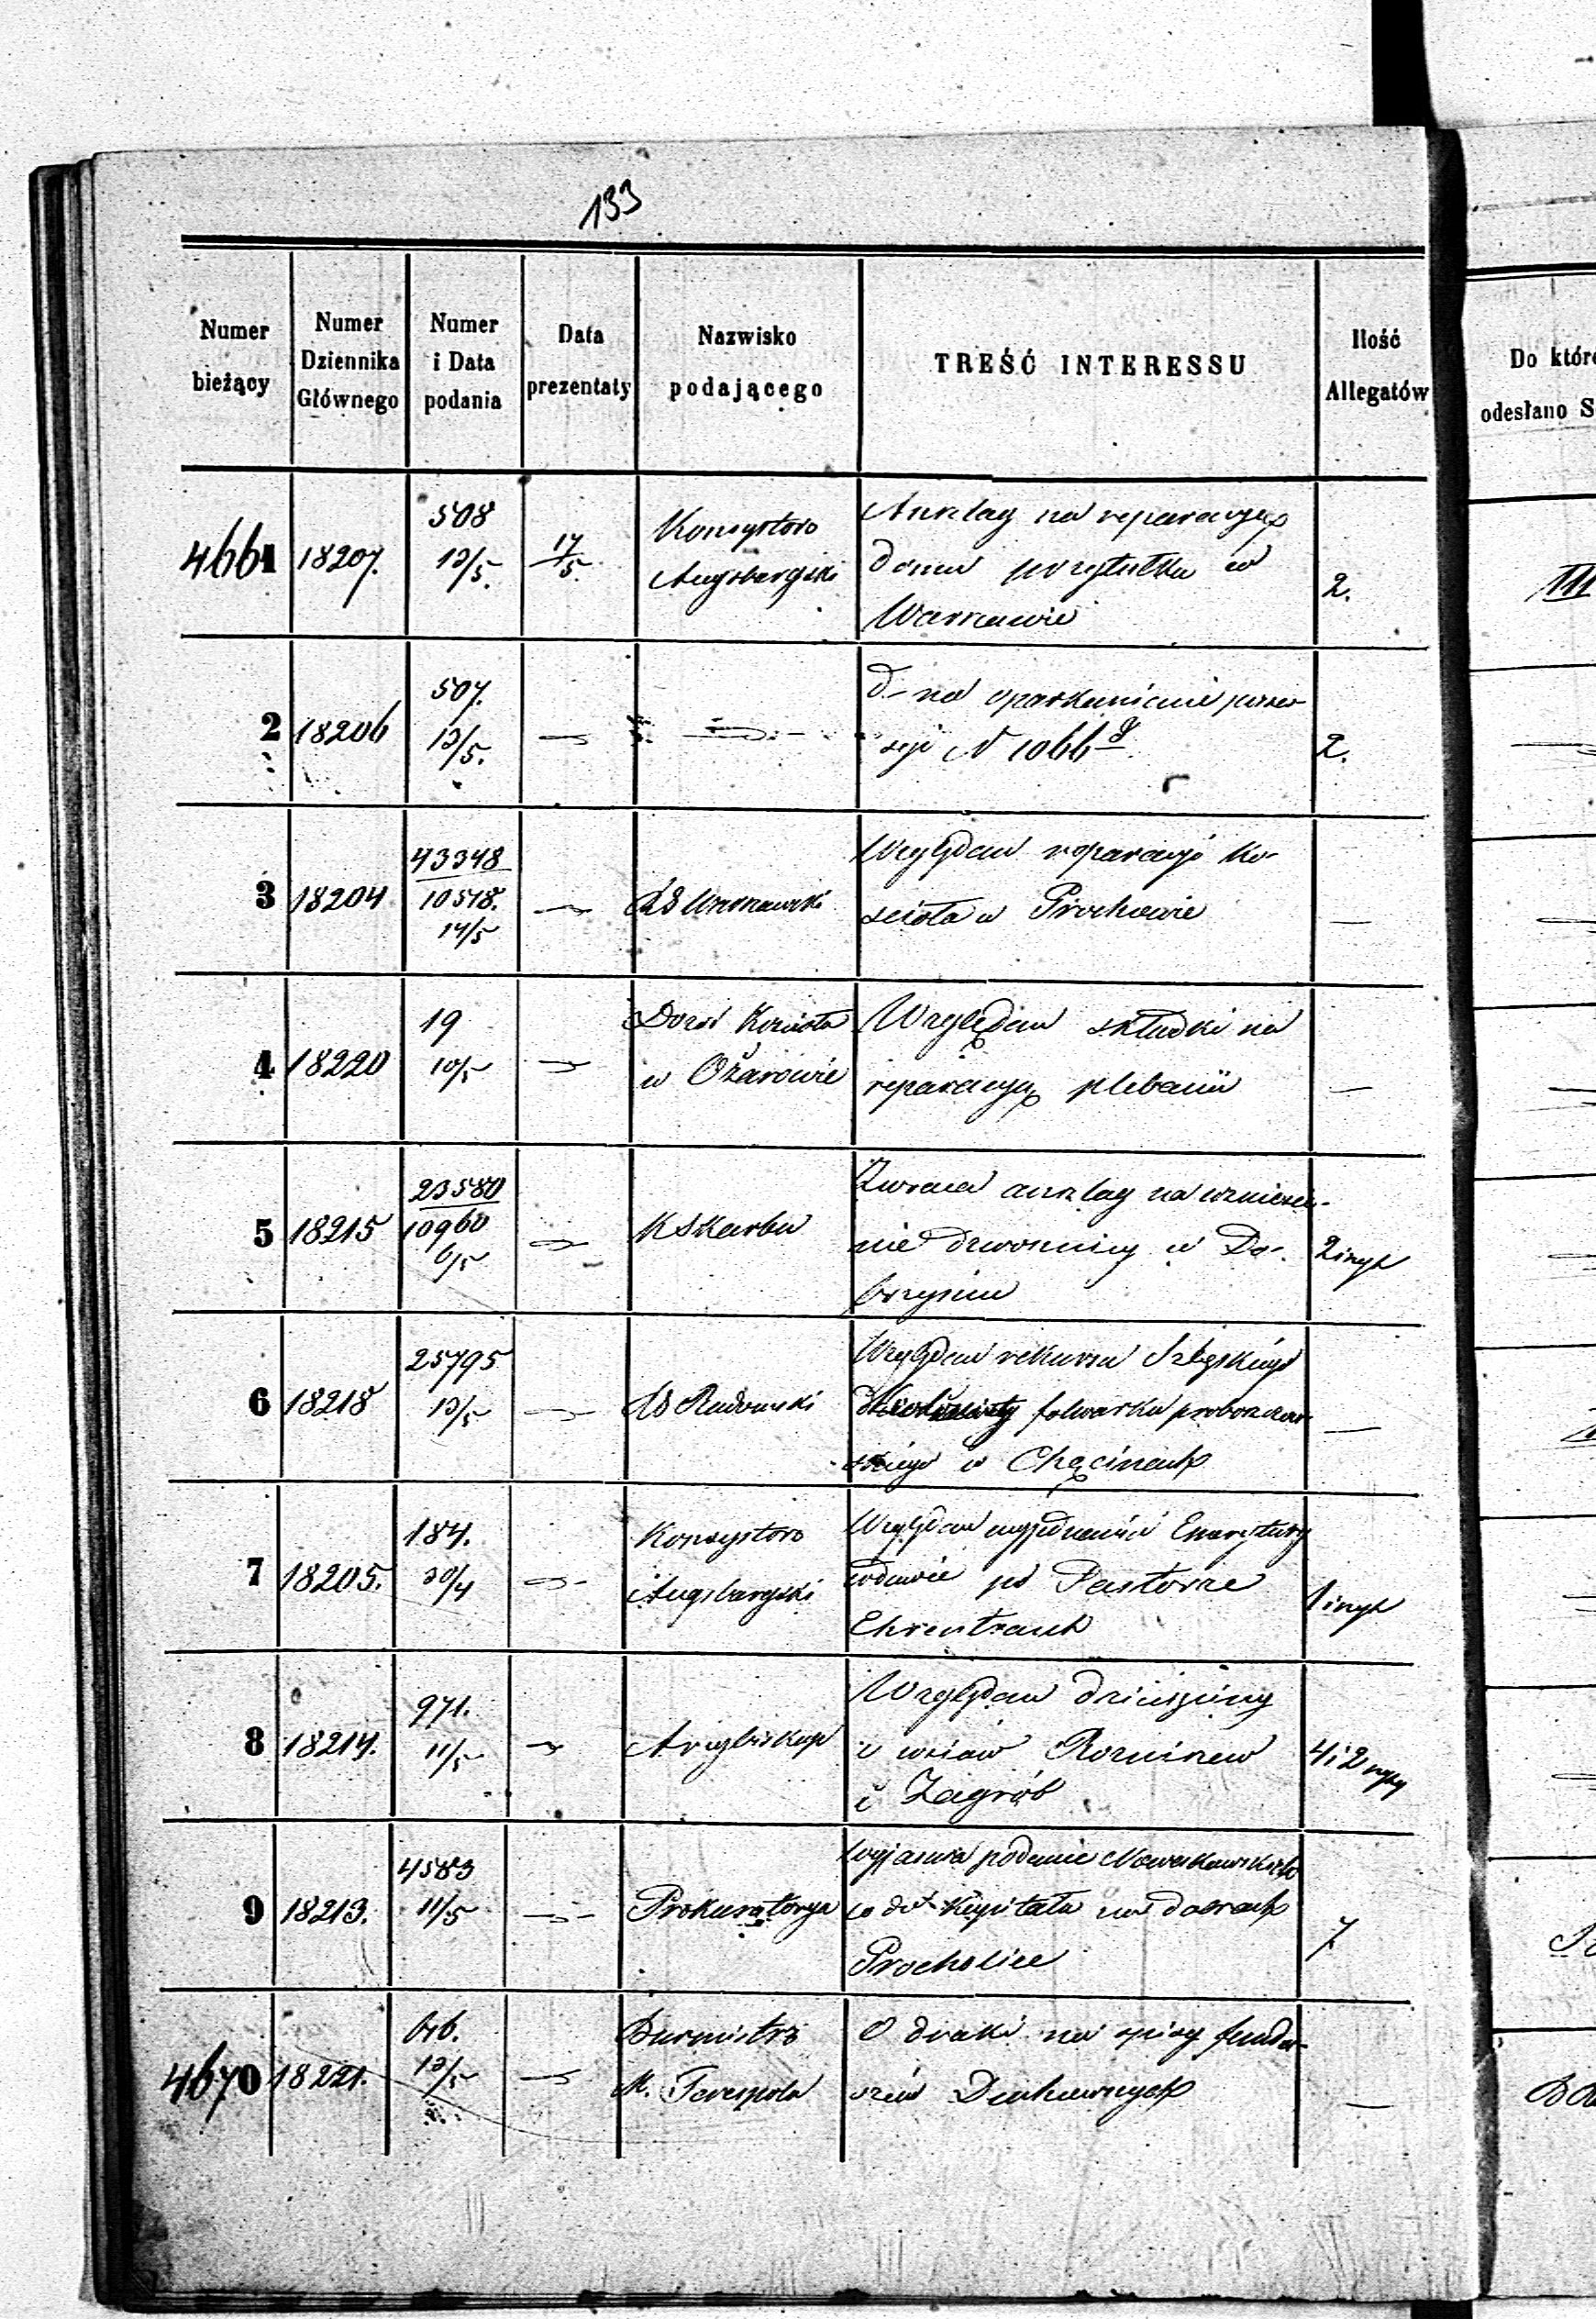 133
Numer bieżący
Numer Dziennika Głównego
Numer i Data podania
Data prezentaty
Nazwisko podającego
TREŚĆ INTERESSU
Ilość Allegatów
Do któr
odesłano S
4661
18207.
508
13/5.
17/5.
Konsystorz
Augsburgski
Anszlag na reparacyę
domu przytułku w
Warszawie
2.
III
2
18206
507.
13/5.
d– na oparkanienie posse-
syi N 1066
2.
3
18204
43348
10518.
14/5
Względem reparacyi ko-
ścioła w
—
4
18220
19
10/5
Dozór Kościoła
w Ożarowie
Względem składki na
reparacyą plebanii
—
5
18215
23580
10960
6/5
K Skarbu
Zwraca anszlag na wzniesie-
nie dzwonnicy w Do-
brzyniu
6
18218
25795
13/5
Radomski
Względem rekursu
folwarku proboszczow-
skiego w Chęcinach
—
7
18205.
184.
30/4
Konsystorz
Augsburgski
Względem Emerytury
wdowie po Pastorze
Ehrentraut
8
18214.
971.
11/5
Arcybiskup
Względem dziesięciny
z wsiów Rozniszew
i Zagrób
9
18213.
4583
11/5
Prokuratorya
Wyjaśnia podanie
co do Kapitału na dobrach
7
4670
18221.
646.
13/5
Burmistrz
M. Terespola
O druki na spisy fundu-
szów Duchownych
—